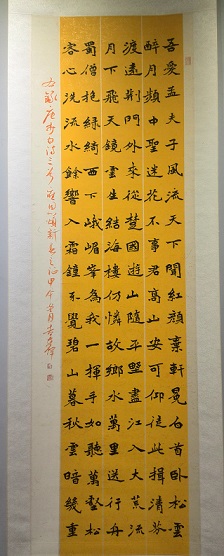 吾愛孟夫子風流天下聞紅顏棄軒冕白首臥松雲
醉月頻中聖迷花不事君高山安可仰徒此揖清芬
渡遠荊門外來從楚國遊山隨平壄盡江入大荒流
月下飛天鏡雲生結海樓仍憐故鄉水萬里送行舟
蜀僧抱綠綺西下峨嵋峯為我一揮手如聽萬壑松
客心洗流水餘響入霜鐘不覺碧山暮秋雲暗幾重
右錄唐李白詩三首